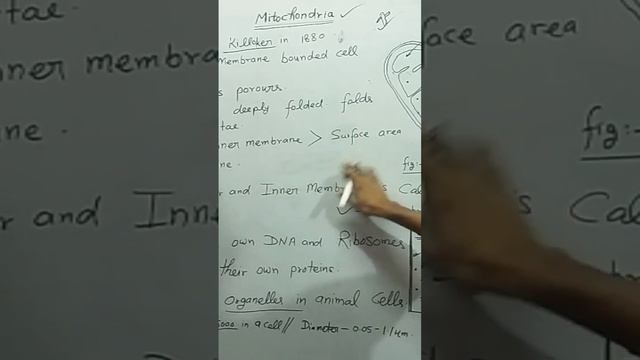 Mitochondria
Killoker in 1880
membrane bounded cell
porours.
deeply folded folds
tae.
nner membrane > Surface area
ne.
fig:-
r and Inner Mem s Cal
own DNA and Ribosomes
their own proteins.
Organelles in animal cells.
5000 in a cell // Diameter - 0.05 - 1.1 µm.